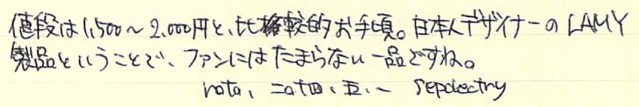 値段は1,500～2,000円と、比較的お手頃。日本人デザイナーのLAMY
製品ということで、ファンにはたまらない一品ですね。